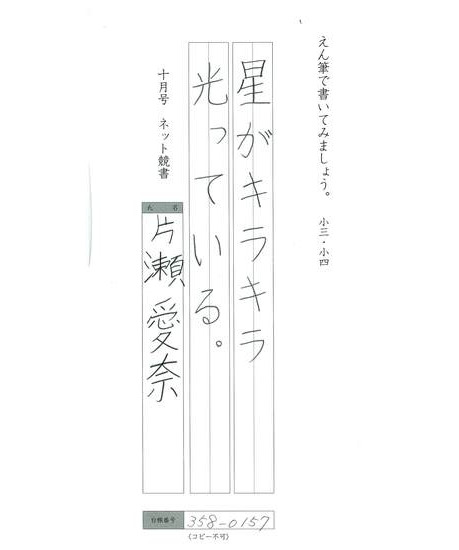 えん筆で書いてみましょう。　小三・小四
星がキラキラ
光っている。
十月号　ネット競書
氏名
片瀬愛奈
台帳番号 358-0157
(コピー不可)